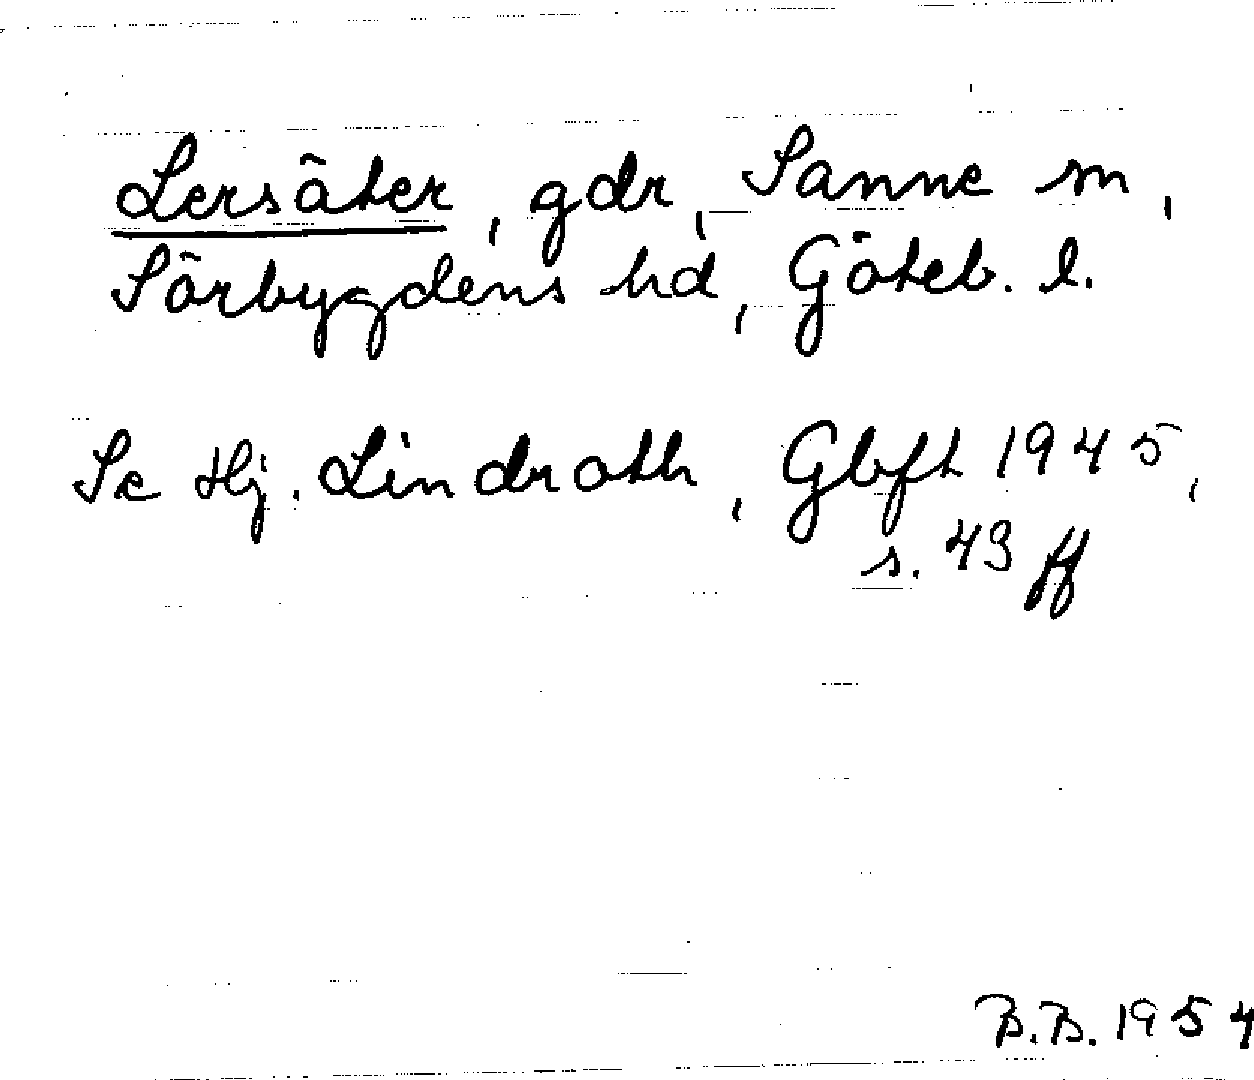 Lersäter, gdr, Sanne sn,
Sörbygdens hd, Göteb. l.
Se Hj. Lindroth, Gbft 1945,
s. 43 ff
B.B. 1954